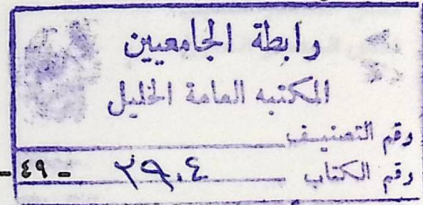 رابطة الجامعيين
المكتبه العامة الخليل
رقم التصنيف
رقم الكتاب ٢٩٠٤
- ٤٩ -